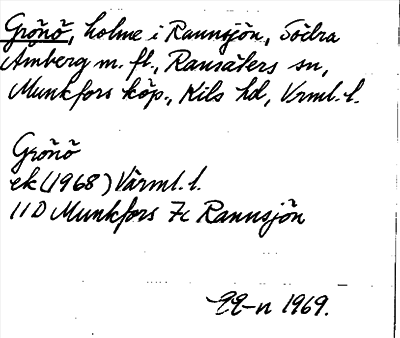 Grönö, holme i Rannsjön, Södra
Amberg m. fl., Ransäters sn,
Munkfors köp., Kils hd, Vrml. l.
Grönö
ek (1968) Värml. l.
11D Munkfors 7c Rannsjön
1969.